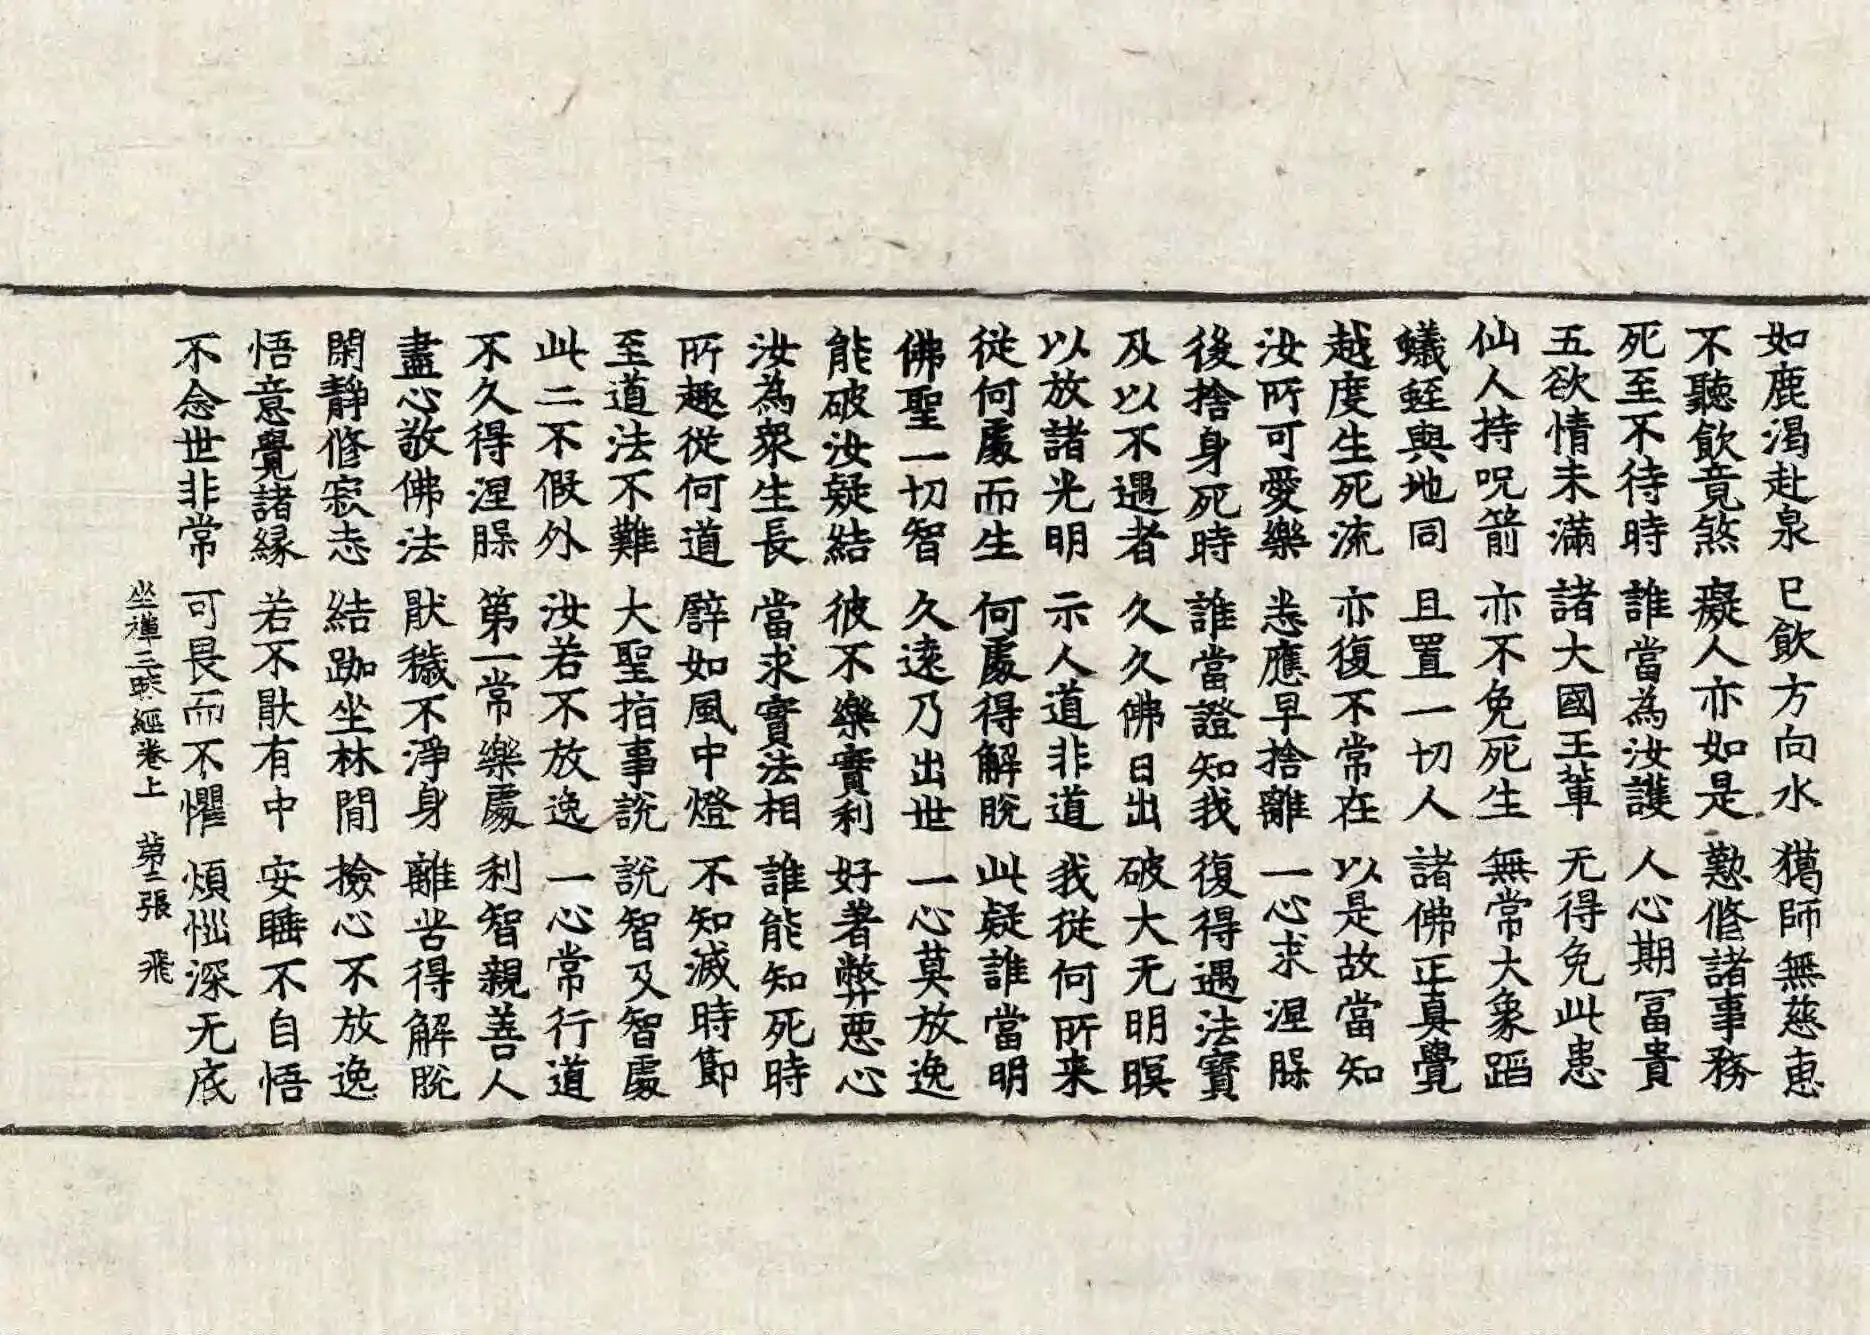 如鹿渴赴泉 已飲方向水 獦師無慈恵
不聽飲竟煞 癡人亦如是 懃修諸事務
死至不待時 誰當為汝護 人心期冨貴
五欲情未滿 諸大國王軰 无得免此患
仙人持呪箭 亦不免死生 無常大象蹈
蟻蛭與地同 且置一切人 諸佛正真覺
越度生死流 亦復不常在 以是故當知
汝所可愛樂 悉應早捨離 一心求涅
後捨身死時 誰當證知我 復得遇法寳
及以不遇者 久久佛日出 破大无明暝
以放諸光明 示人道非道 我從何所来
從何處而生 何處得解脫 此疑誰當明
佛聖一切智 久遠乃出世 一心莫放逸
能破汝疑結 彼不樂實利 好著弊惡心
汝為衆生長 當求實法相 誰能知死時
所趣從何道 譬如風中燈 不知滅時節
至道法不難 大聖指事說 說智及智處
此二不假外 汝若不放逸 一心常行道
不久得涅 第一常樂處 利智親善人
盡心敬佛法 猒穢不淨身 離苦得解脫
閑靜修寂志 結跏坐林閒 撿心不放逸
悟意覺諸緣 若不猒有中 安睡不自悟
不念世非常 可畏而不懼 煩惱深无底
坐禪三昧經卷上 第二張 飛